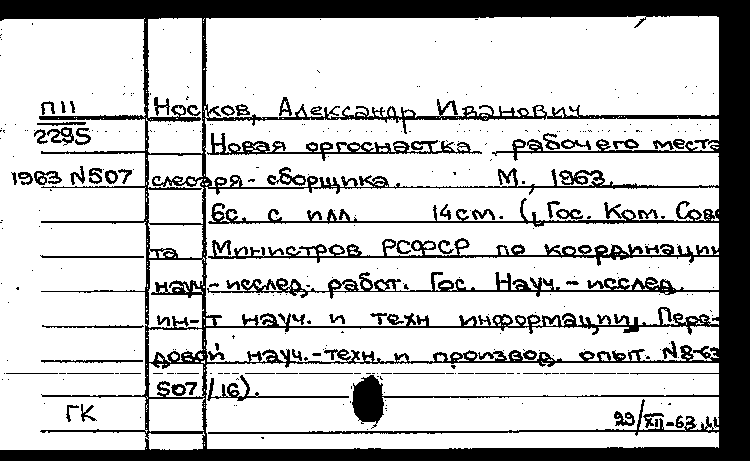 П11 Носков, Александр Иванович
2295 Новая оргоснастка рабочего места
1963 №507 слесаря-сборщика. М., 1963.
6с. с илл. 14см. ([Гос. Ком. Сове
та Министров РСФСР по координации
науч-исслед. работ. Гос. Науч.-исслед.
ин-т науч. и техн информации]. Пере-
довой науч.-техн. и производ. опыт. №8-63
507/16).
ГК
29/XII-63